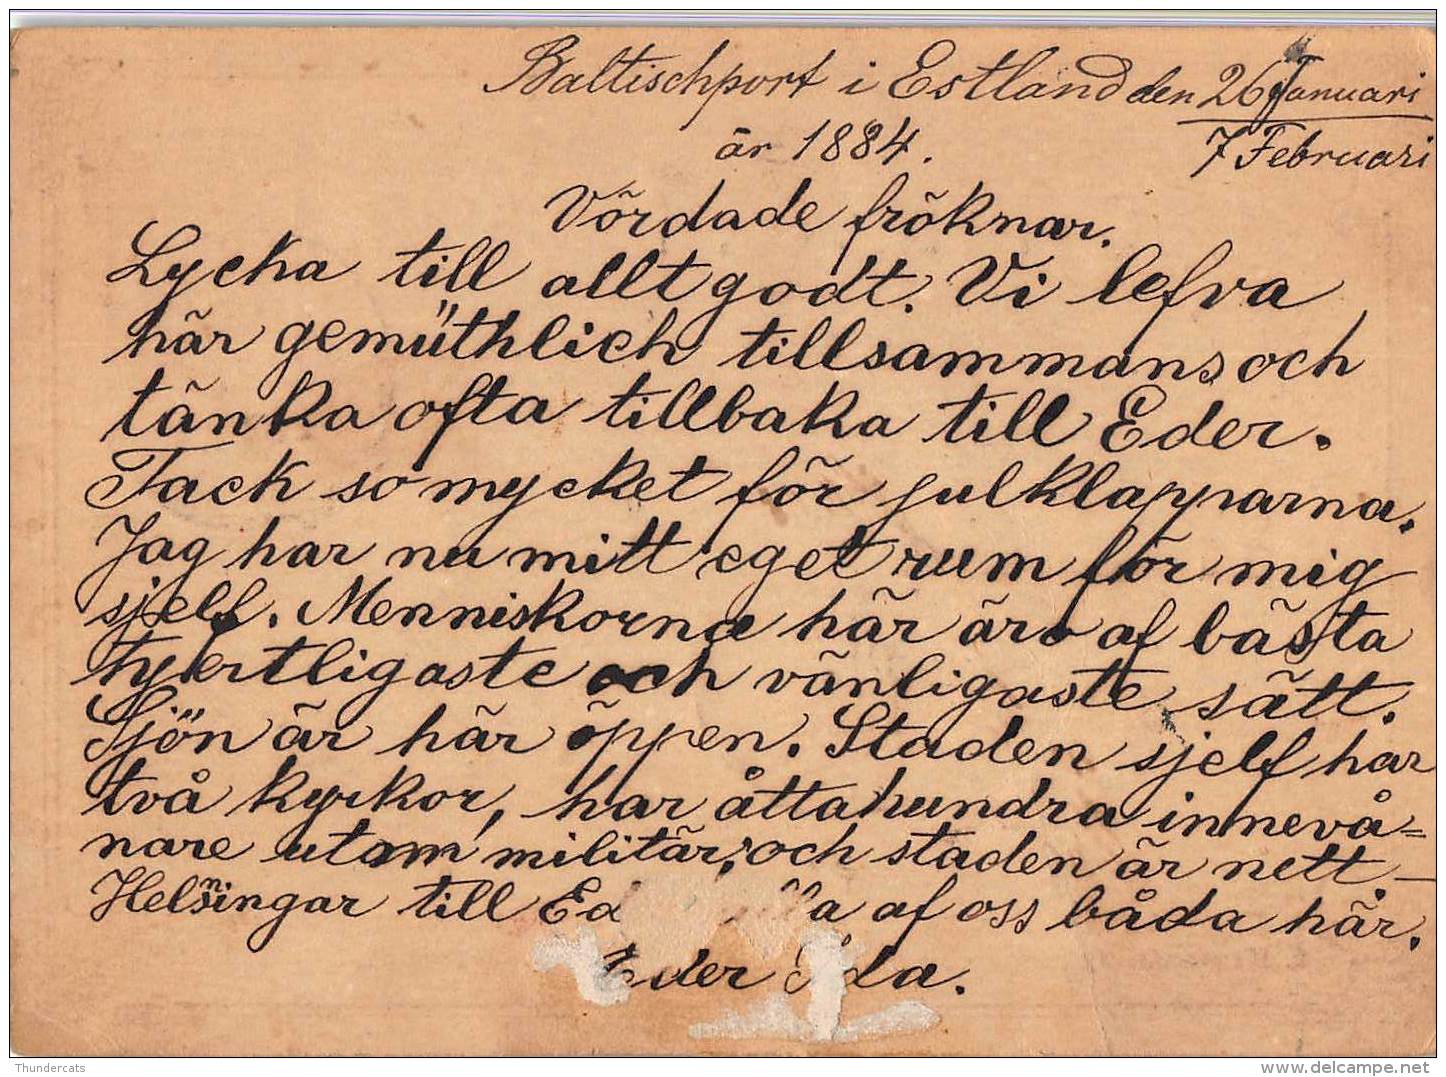 Baltischport i Estland den 26 Januari
år 1884. 7 Februari
Vördade fröknar.
Lycka till allt godt. Vi lefva
här gemüthlich tillsammans och
tänka ofta tillbaka till Eder.
Tack so mycket för julklapparna.
Jag har nu mitt eget rum för mig
sjelf. Menniskorna här äro af bästa
hjertligaste och vänligaste sätt.
Sjön är här öppen. Staden sjelf har
två kyrkor, har åttahundra innevå=
nare utom militär, och staden är nett.—
Helsningar till af oss båda här.
Eder Ida.
Thundercats
delcampe.net